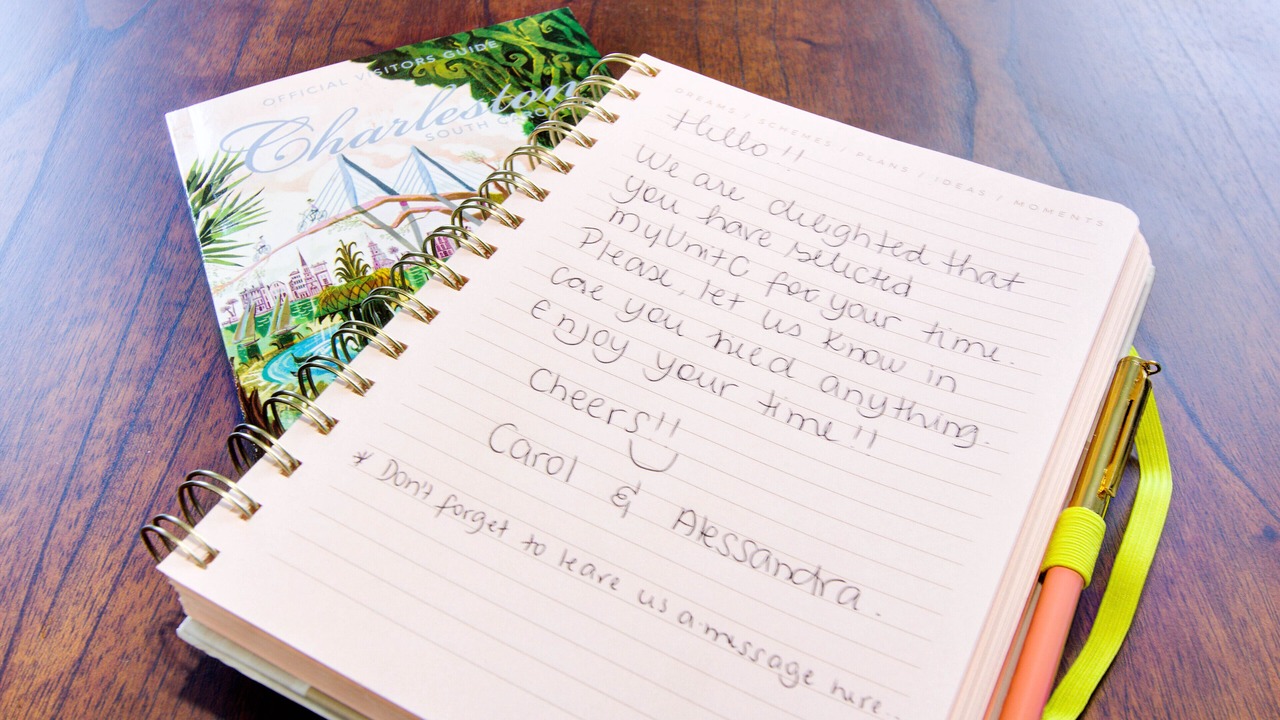 OFFICIAL VISITORS GUIDE
Charleston
SOUTH CAROLINA
DREAMS / SCHEMES / PLANS / IDEAS / MOMENTS
Hello !!
We are delighted that
you have selected
myUnitC for your time.
Please, let us know in
case you need anything.
Enjoy your time !!
Cheers!!
Carol & Alessandra.
* Don't forget to leave us a message here..